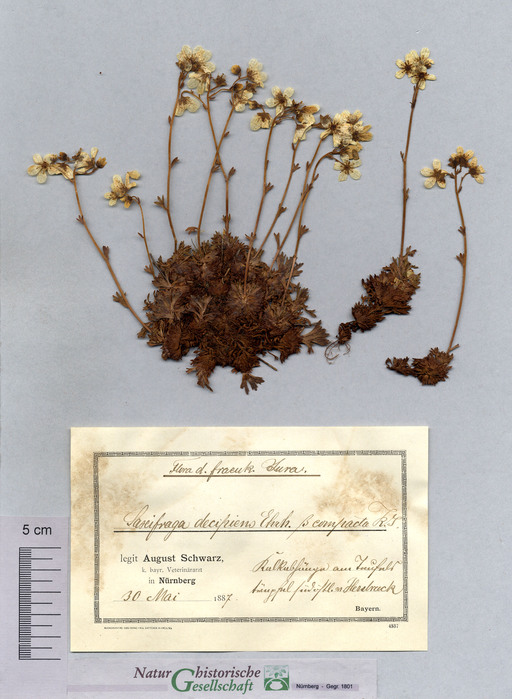 Flora d. fraenk. Jura.
Saxifraga decipiens Ehrh. β compacta K.
legit August Schwarz,
k. bayr. Veterinärarzt
in Nürnberg
30 Mai 1887.
am
Hersbruck
Bayern.
4887
5 cm
Naturhistorische
Gesellschaft
Nürnberg - Gegr. 1801